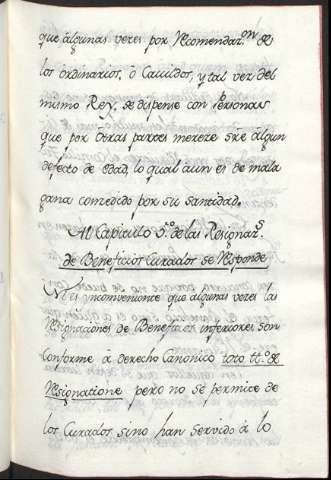 que algunas veces por Recomendaz.on de
los ordinarios, ô Cauildos, y tal vez del
mismo Rey, se dispense con Personas
que por otras partes mereze sre algun
defecto de edad, lo qual aun es de mala
gana conzedido por su santidad.
Al Capitulo 5.o de las Resignaz.s
de Beneficios Curados se Responde
es inconveniente que algunas vezes las
Resignaciones de Beneficios inferiores son
conforme â derecho Canonico toto tt.o de
Resignatione pero no se permite de
los Curados sino han servido â lo